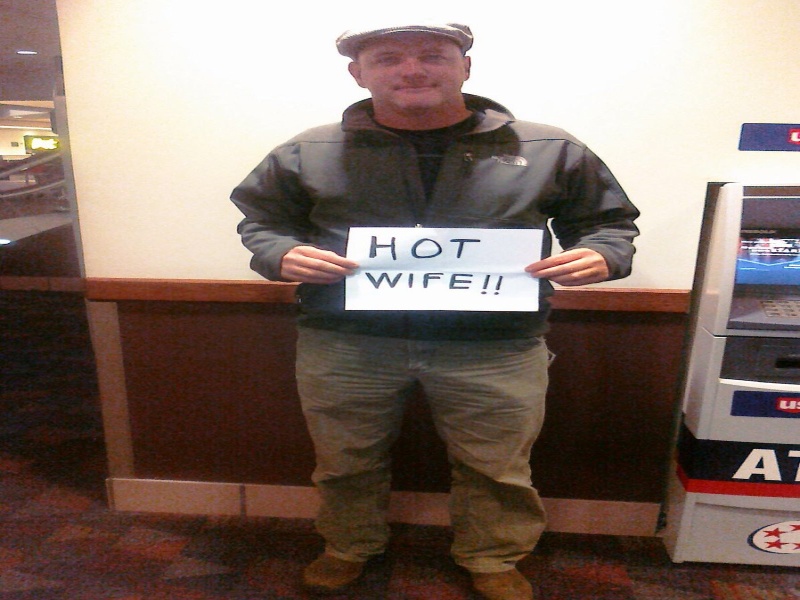 HOT
WIFE!!
us
AT